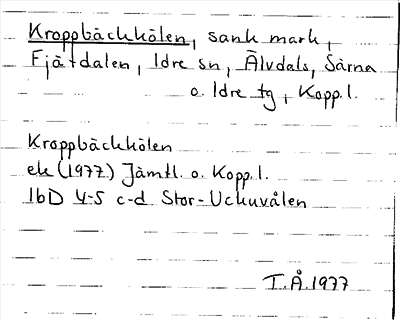 Kroppbäckkölen, sank mark,
Fjätdalen, Idre sn, Älvdals, Särna
o. Idre tg, Kopp.l.
Kroppbäckkölen
ek (1977) Jämtl. o. Kopp.l.
16D 4-5 c-d Stor-Uckuvålen
T.Å.1977